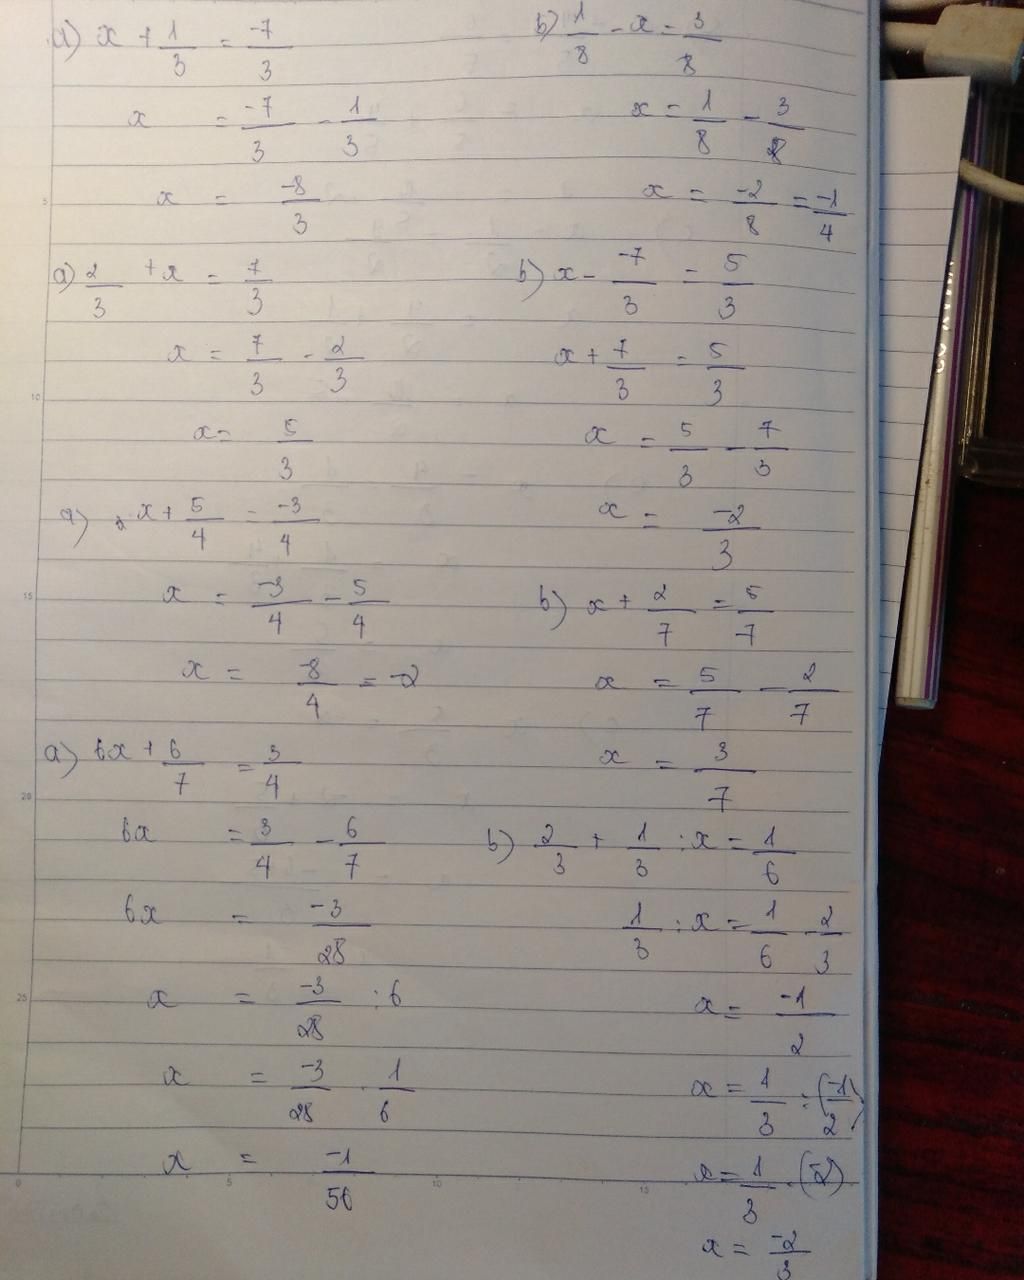 a) x + 1/3 = -7/3
x = -7/3 - 1/3
x = -8/3
b) 1/8 - x = 3/8
x = 1/8 - 3/8
x = -2/8 = -1/4
a) 2/3 + x = 7/3
x = 7/3 - 2/3
x = 5/3
b) x - -7/3 = 5/3
x + 7/3 = 5/3
x = 5/3 - 7/3
x = -2/3
a) x + 5/4 = -3/4
x = -3/4 - 5/4
x = -8/4 = -2
b) x + 2/7 = 5/7
x = 5/7 - 2/7
x = 3/7
a) 6x + 6/7 = 3/4
6x = 3/4 - 6/7
6x = -3/28
x = -3/28 : 6
x = -3/28 . 1/6
x = -1/56
b) 2/3 + 1/3 : x = 1/6
1/3 : x = 1/6 - 2/3
x = -1/2
x = 1/3 : (-1/2)
x = 1/3 . (-2)
x = -2/3
5
10
15
20
25
0
5
10
15